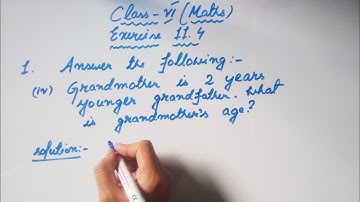 Class - VI (Maths)
Exercise 11.4
1. Answer the following:-
(iv) Grandmother is 2 years
younger grandfather. What
is grandmother's age?
solution:-